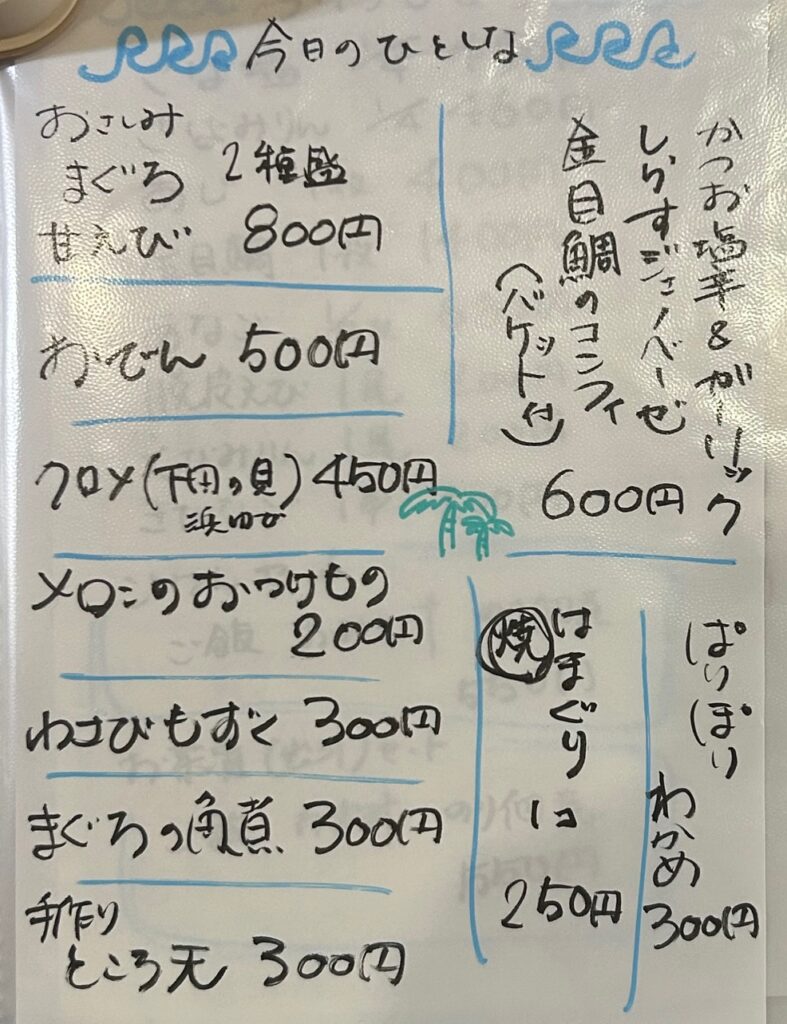 今日のひとしな
おさしみ
まぐろ 2種盛
甘えび 800円
おでん 500円
クロメ(下田の貝) 450円
メロンのおつけもの
200円
わさびもずく 300円
まぐろの角煮 300円
手作り
ところ天 300円
かつお塩辛&ガーリック
しらすジェノベーゼ
金目鯛のコンフィ
(バケット付)
600円
焼はまぐり
1コ
250円
ぱりぽり
わかめ
300円